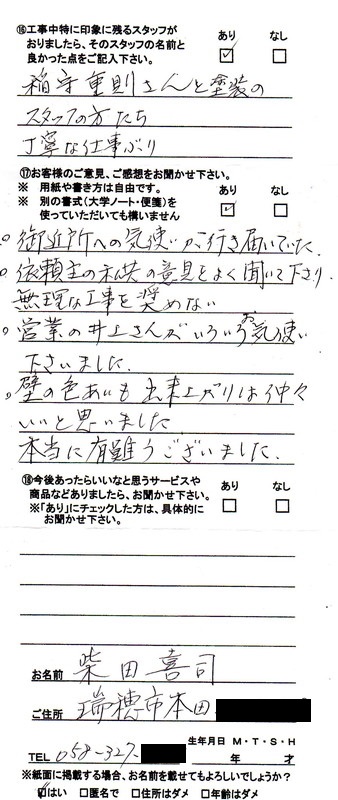 ⑯工事中特に印象に残るスタッフが あり なし
おりましたら、そのスタッフの名前と
良かった点をご記入下さい。 ☑ □
稲守重則さんと塗装の
スタッフの方たち
丁寧な仕事ぶり
⑰お客様のご意見、ご感想をお聞かせ下さい。
※ 用紙や書き方は自由です。 あり なし
※ 別の書式(大学ノート・便箋)を
使っていただいても構いません ☑ □
○ 御近所への気使いが行き届いていた.
○ 依頼主の私共の意見をよく聞いて下さり.
無理な工事を奨めない
○ 営業の井上さんがいろいろお気使い
下さいました.
○ 壁の色あいも出来上がりは仲々
いいと思いました
本当に有難うございました.
⑱今後あったらいいなと思うサービスや あり なし
商品などありましたら、お聞かせ下さい。
※「あり」にチェックした方は、具体的に □ □
お聞かせ下さい。
お名前 柴田喜司
ご住所 瑞穂市本田
生年月日 M・T・S・H
TEL 058-327- 年 才
※紙面に掲載する場合、お名前を載せてもよろしいでしょうか?
☑はい □匿名で □住所はダメ □年齢はダメ